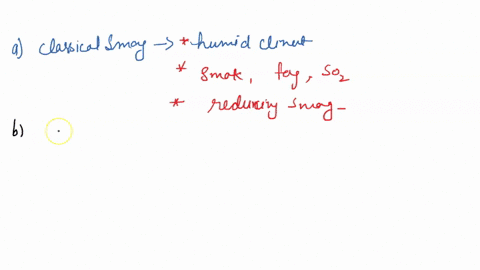 a) classical Smog → * humid climat
* Smok, fog, SO2
* reducing smog -
b)